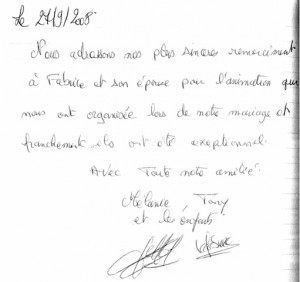 le 27/9/2008
Nous adressons nos plus sinceres remerciment
à Fabrice et son épouse pour l'animation qui
nous ont organisée lors de notre mariage et
franchement ils ont été exeptionnel.
Avec Toute notre amitié.
Mélanie Tony
et les enfants